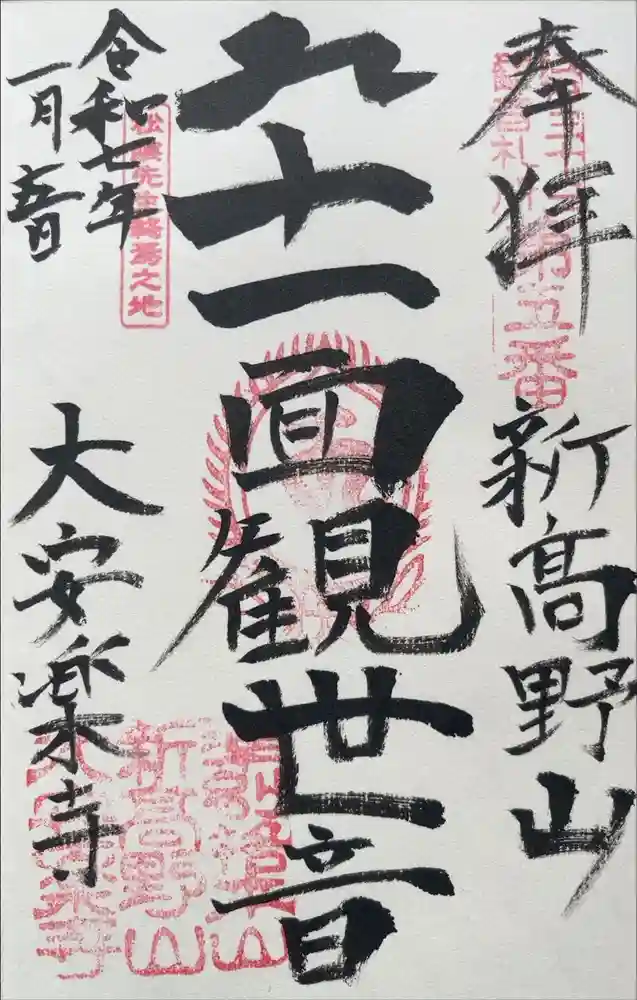 奉拝
新高野山
十一面観世音
令和七年
一月吉日
大安楽寺
松陰先生終焉之地
新高野山
大安楽寺